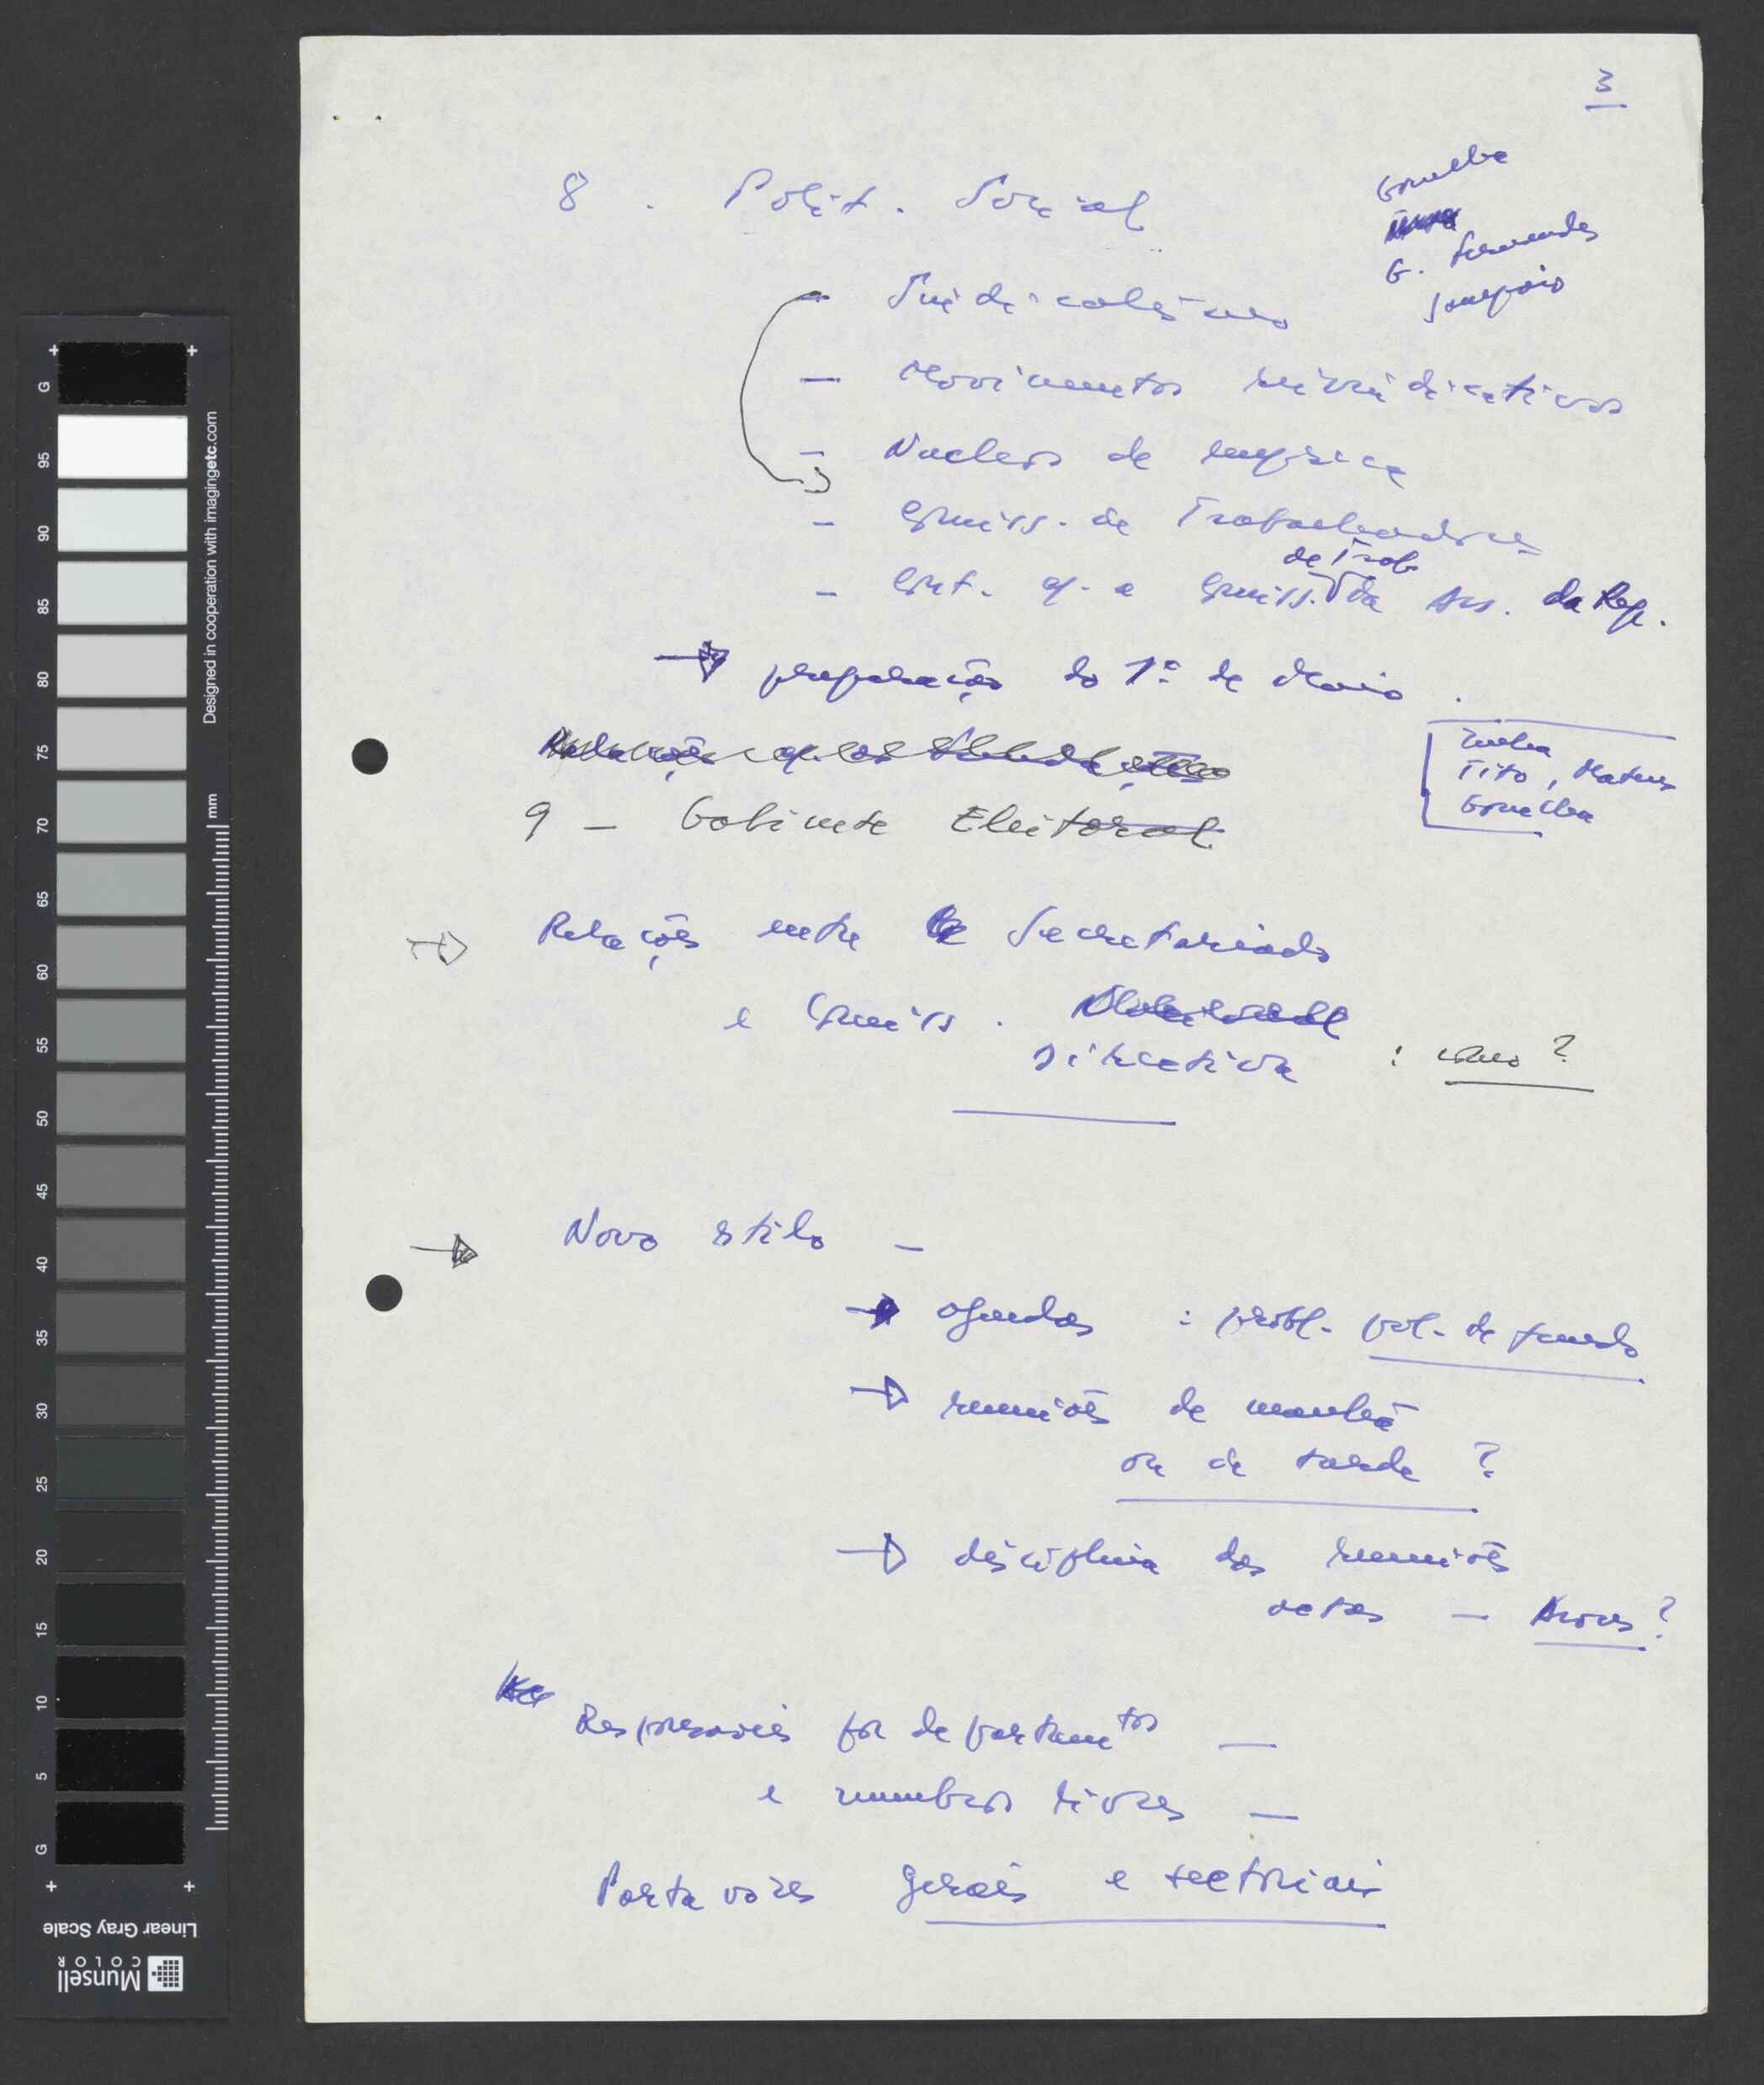 3
8. Polit. Social
G. Fernandes
Sampaio
- Sindicalismo
- Movimentos reivindicativos
- Nucleos de empresa
- Comiss. de Trabalhadores
de Trab
- Cont. c/ a Comiss. da Ass. da Rep.
→ preparação do 1º de Maio.
Tito, Mateus
9 - Gabinete Eleitoral
→ Relações entre Secretariado
e Comiss.
Directiva : como?
→ Novo estilo -
→ agendas : probl. pol. de fundo
→ reuniões de manhã
ou de tarde ?
→ disciplina das reuniões
actas - Aires?
Responsáveis por departamentos -
e membros livres -
Porta vozes gerais e sectoriais
Designed in cooperation with imagingetc.com
mm
G
95
90
85
80
75
70
65
60
55
50
45
40
35
30
25
20
15
10
5
G
Linear Gray Scale
Munsell
COLOR